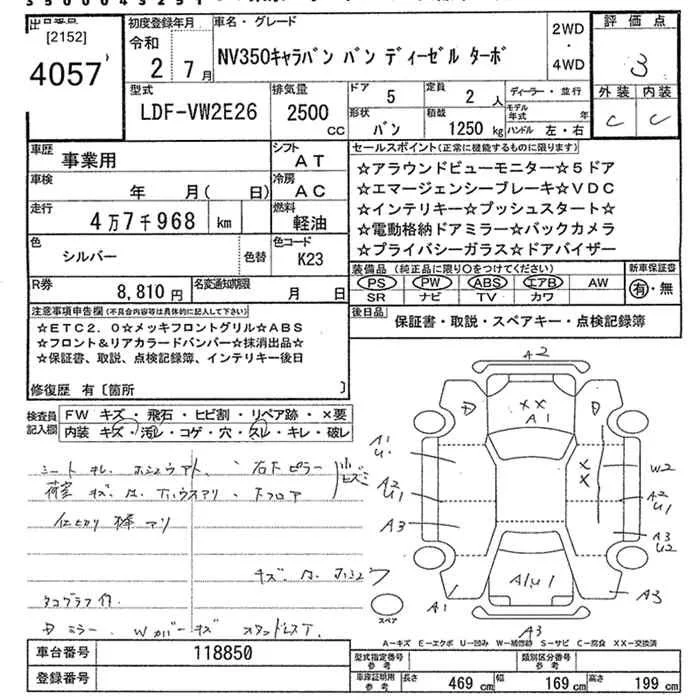 [2152]
4057
初度登録年月
令和
2年 7月
車名・グレード
NV350キャラバン バン ディーゼル ターボ
2WD
・
4WD
評価点
3
外装 内装
C C
型式
LDF-VW2E26
排気量
2500 CC
ドア 5
定員 2人
形状 バン
積載 1250 kg
ディーラー・並行
モデル年式 年
ハンドル 左・右
車歴 事業用
シフト AT
車検 年 月( 日)
冷房 AC
走行 4万7千968 km
燃料 軽油
色 シルバー 色替
色コード K23
R券 8,810円
名変通知期限 月 日
セールスポイント(正常に機能するものに限ります)
☆アラウンドビューモニター☆5ドア
☆エマージェンシーブレーキ☆VDC
☆インテリキー☆プッシュスタート☆
☆電動格納ドアミラー☆バックカメラ
☆プライバシーガラス☆ドアバイザー
装備品(純正品に限り○をつけてください)
PS PW ABS エアB AW
SR ナビ TV カワ
新車保証書
有・無
後日品 保証書・取説・スペアキー・点検記録簿
注意事項申告欄(不具合内容等は具体的に記入して下さい)
☆ETC2.0☆メッキフロントグリル☆ABS
☆フロント&リアカラードバンパー☆抹消出品☆
☆保証書、取説、点検記録簿、インテリキー後日
修復歴 有〔箇所 〕
検査員記入欄
FW キズ・飛石・ヒビ割・リペア跡・×要
内装 キズ・汚レ・コゲ・穴・スレ・キレ・破レ
荷室 キズ
仕切り棒アリ
タコグラフ付
ミラー Wカバーキズ
A2
XX
A1
A1
U1
A2
U1
A3
A1
XX
W2
A2
U1
A3
U2
A3
A1U1
A3
スペア
A-キズ E-エクボ U-凹み W-補修跡 S-サビ C-腐食 XX-交換済
車台番号 118850
登録番号
型式指定番号 参考
類別区分番号 参考
車庫証明用 参考 長さ 469 cm 幅 169 cm 高さ 199 cm